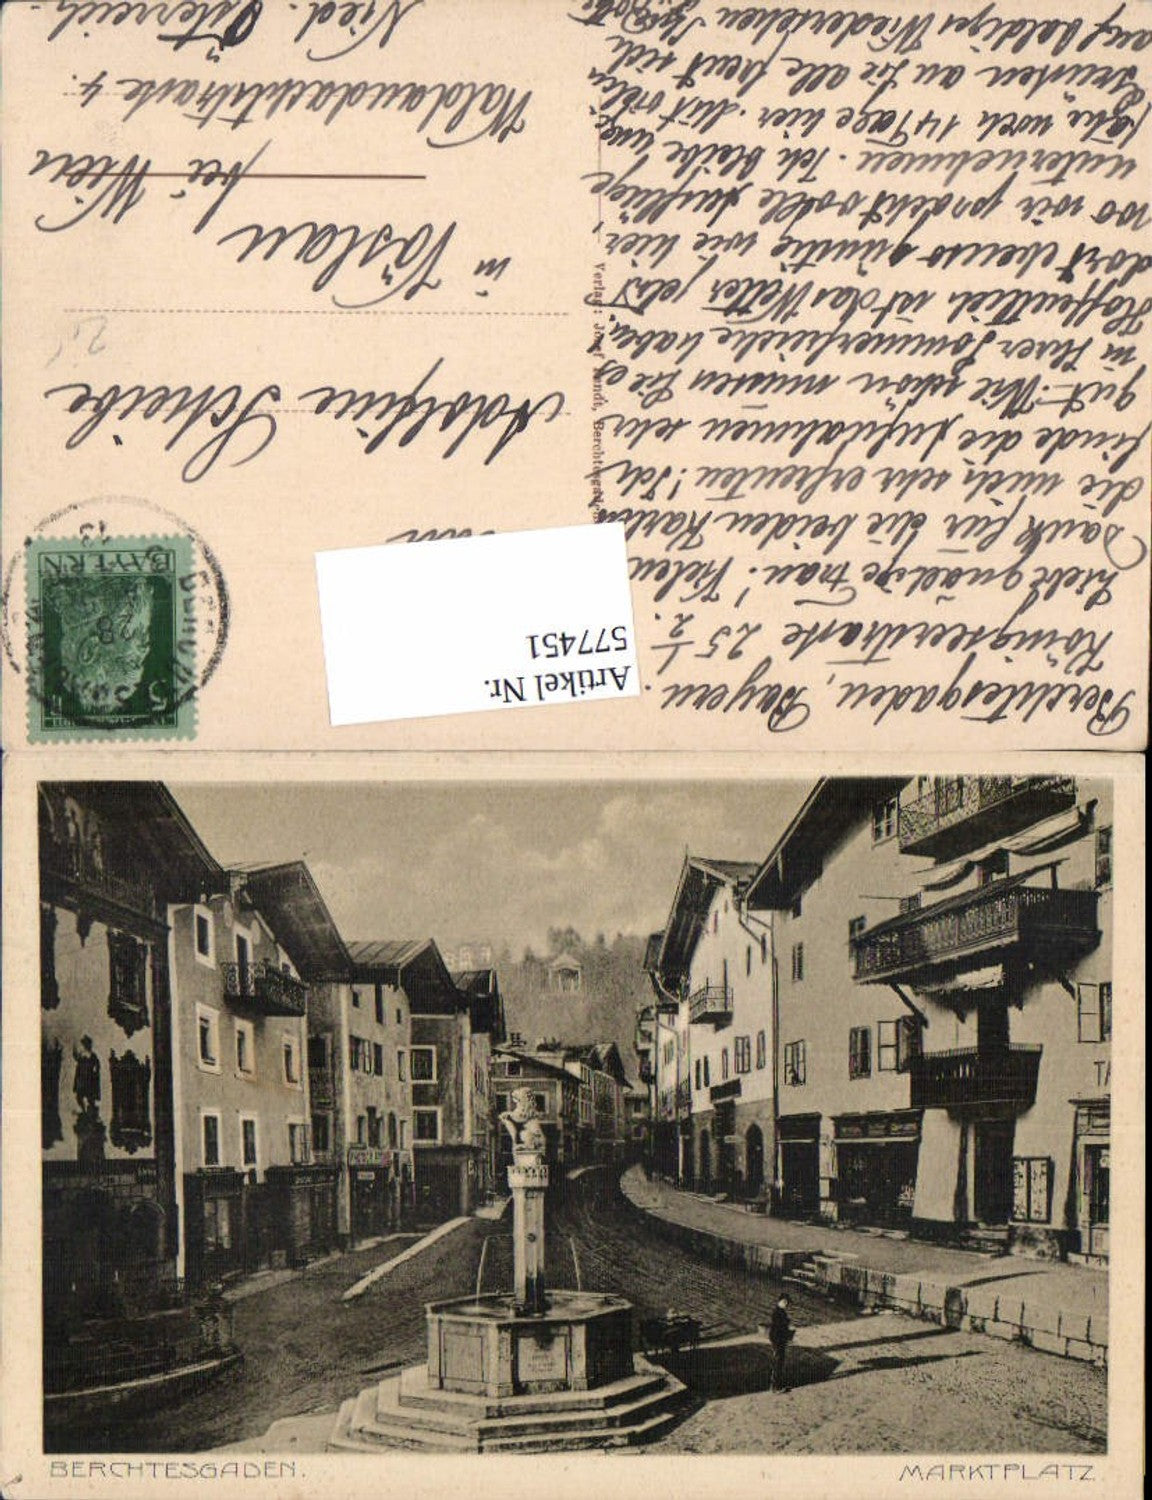 Berchtesgaden, Bayern.
Königsseerstrasse 25 1/2.
Liebe gnädige Frau! Vielen
Dank für die beiden Karten
die mich sehr erfreuten! Ich
finde die Aufnahmen sehr
gut. Wie schön müssen Sie es
in Ihrer Sommerfrische haben.
Hoffentlich ist das Wetter jetzt
dort ebenso günstig wie hier,
wo wir prachtvolle Ausflüge
unternehmen. Ich bleibe unge-
fähr noch 14 Tage hier. Mit vielen
Grüssen an Sie alle freut sich
auf baldiges Wiedersehen Ihre
Artikel Nr.
577451
Verlag: Josef Berchtesgaden
5
BAYERN
28
13
Adolfine Scheibe
in Vöslau
bei Wien
Waldandachtstrasse 4.
Nied. Österreich.
BERCHTESGADEN.
MARKTPLATZ